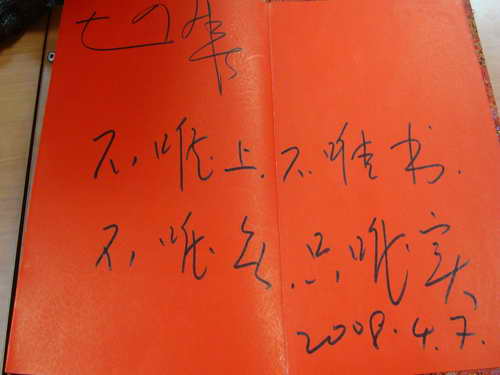 不唯上.不唯书.
不唯 .只唯实
2008.4.7.